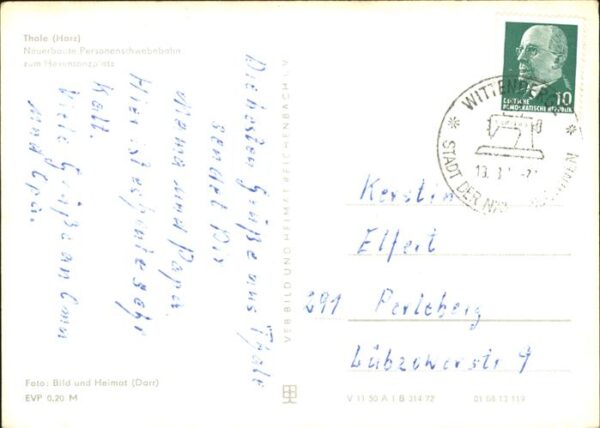 Thale (Harz)
Neuerbaute Personenschwebebahn
zum Hexentanzplatz
Die besten Grüße aus Thale
sendet Dir
Mama und Papa.
Hier ist es heute sehr
kalt.
Viele Grüße an Oma
und Opa.
Foto: Bild und Heimat (Darr)
EVP 0,20 M
VEB BILD UND HEIMAT REICHENBACH i. V.
DEUTSCHE
DEMOKRATISCHE REPUBLIK
10
WITTENBERGE
STADT DER
13.
Kerstin
Elfert
291 Perleberg
Lübzowerstr 9
V 11 50 A 1 B 314 72
01 08 13 119